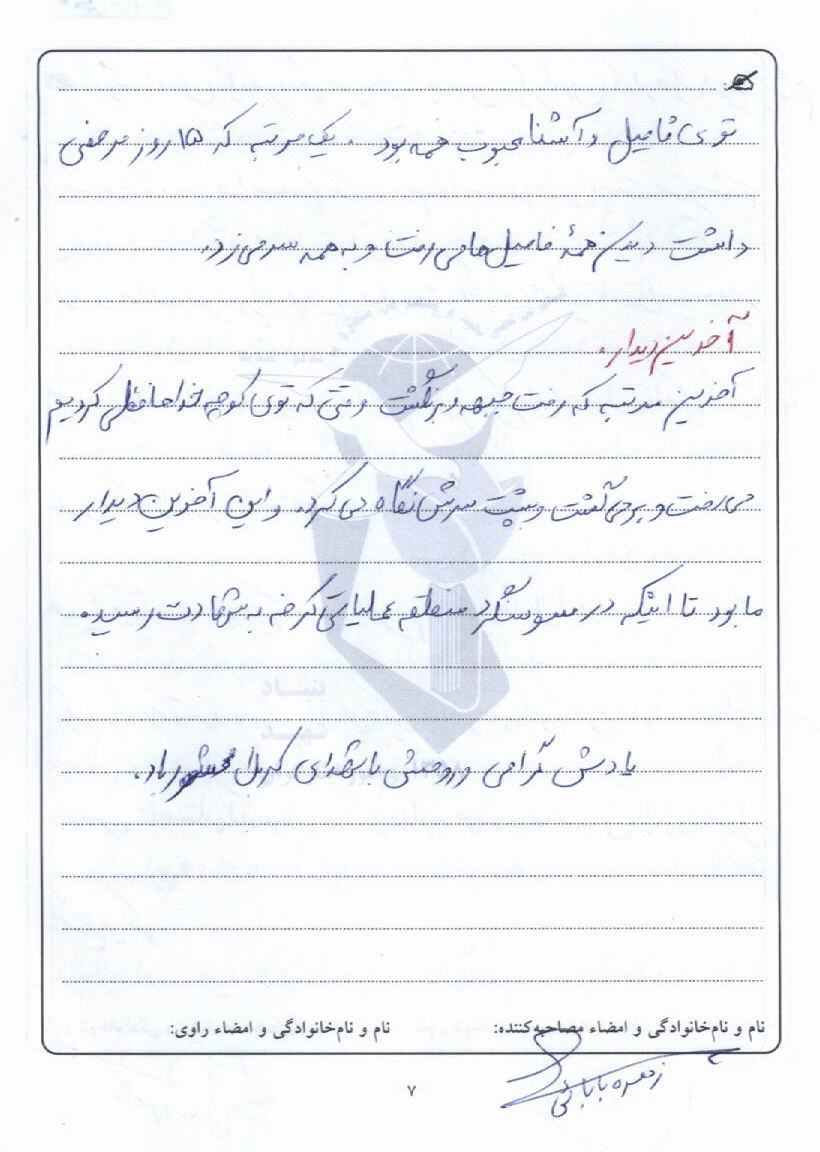 توی فامیل و آشنا محبوب همه بود. یک مرتبه که ۱۵ روز مرخصی
داشت دیدن همهٔ فامیل‌ها می رفت و به همه سر می زد.
آخرین دیدار.
آخرین مرتبه که رفت جبهه و برنگشت وقتی که توی کوچه خداحافظی کردیم
می رفت و برمی گشت و پشت سرش نگاه می کرد. و این آخرین دیدار
ما بود تا اینکه در سوسنگرد منطقه عملیاتی کرخه به شهادت رسید.
یادش گرامی و روحش با شهدای کربلا محشور باد.
نام و نام‌خانوادگی و امضاء مصاحبه‌کننده: نام و نام‌خانوادگی و امضاء راوی:
زهره بابائی
۷